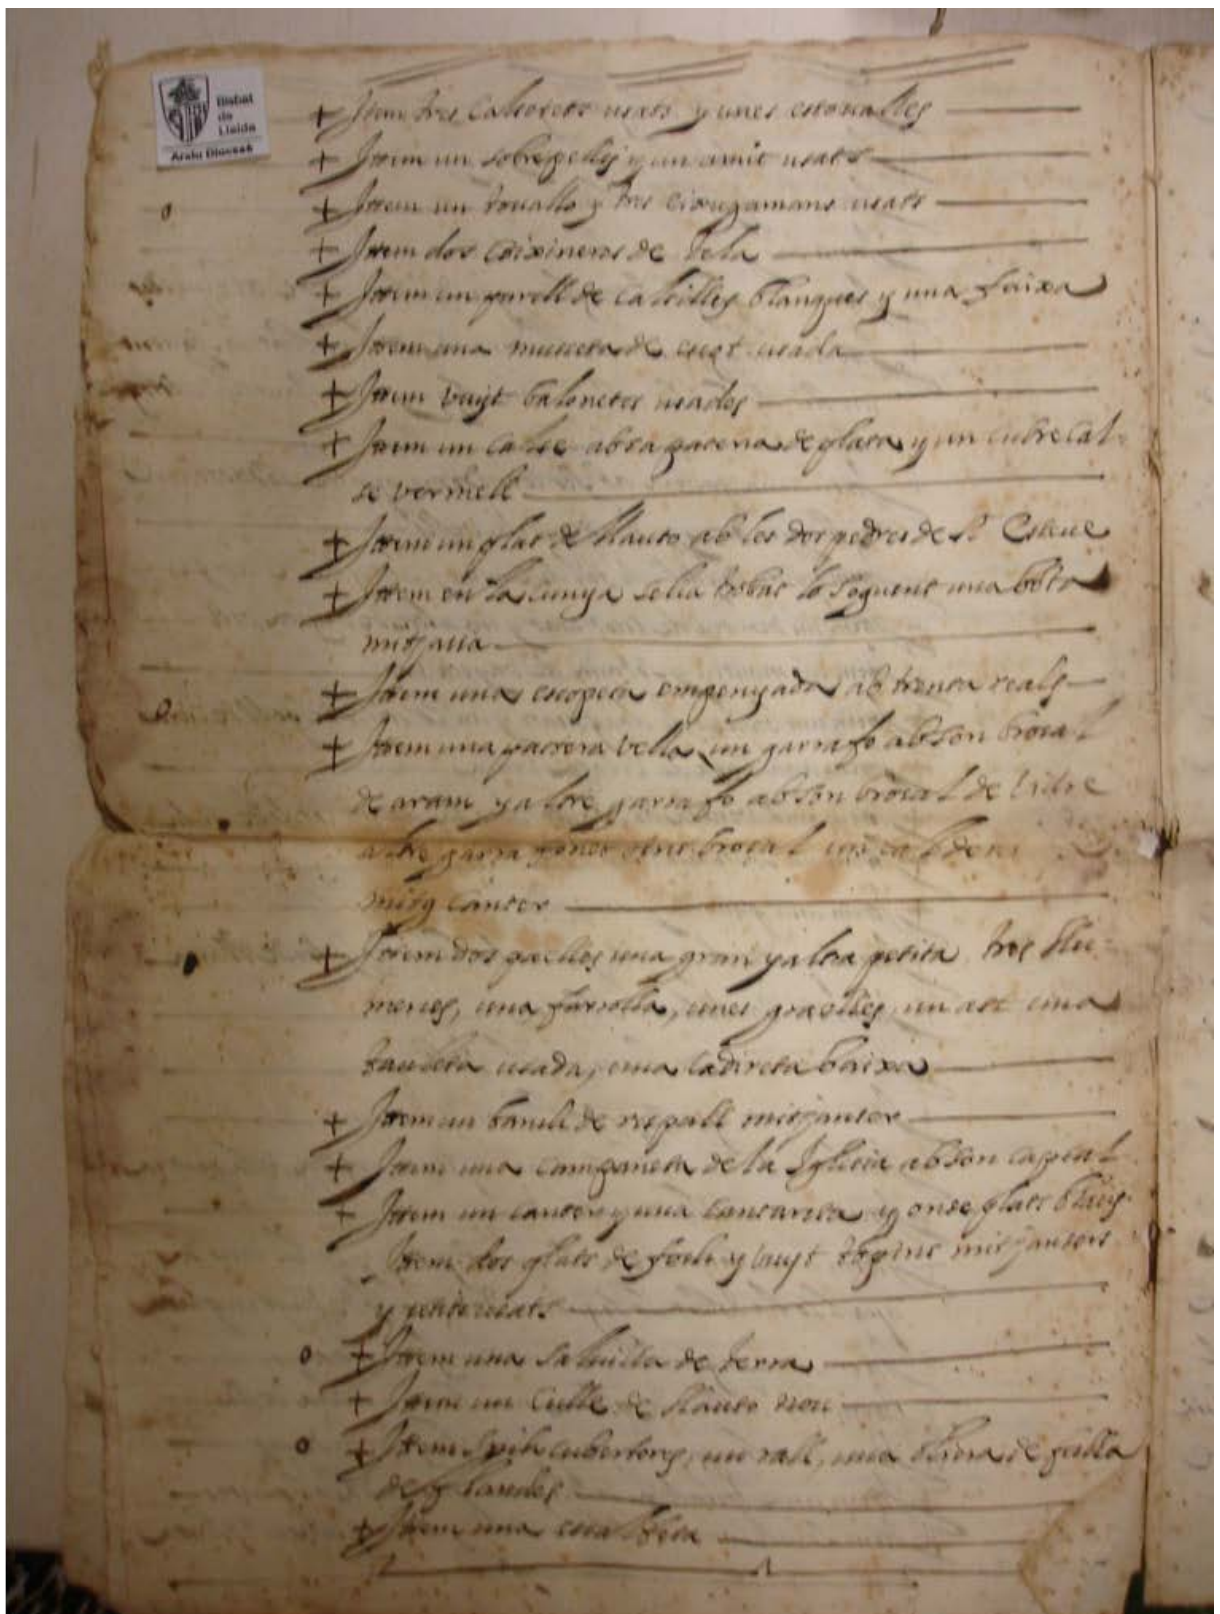 Bisbat
de
Lleida
Arxiu Diocesà
+ Item tres calsotets usats y unes estovalles
+ Item un sobrepellis y un amit usats
+ Item un tovallo y tres exugamans usats
+ Item dos coixineras de tela
+ Item un parell de calsilles blanques y una faixa
+ Item una musseta de usada
+ Item vuyt balonetes usades
+ Item un calse ab sa patena de plata y un cubrecal-
se vermell
+ Item un plat de llauto ab les dos pedres de St Esteve
+ Item en la cunya se ha trobat lo seguent una bota
mitjana
+ Item una escopeta empenyada ab trenta reals
+ Item una vella un garrafo ab son brocal
de aram y altre garrafo ab son brocal de vidre
altre sens brocal
mitg canter
+ Item dos paelles una gran y altra petita tres llu-
menes, una farrolla, unes graelles, un ast una
tauleta usada, una cadireta baixa
+ Item un de mitjanser
+ Item una campaneta de la Iglesia ab son
+ Item un canter y una cantareta y onse plats blaus
Item dos plats de foch y vuyt topins mitjansers
y petits usats
+ Item una de terra
+ Item un culle de llauto nou
+ Item cubertores, un rall, una de fulla
de flandes
+ Item una